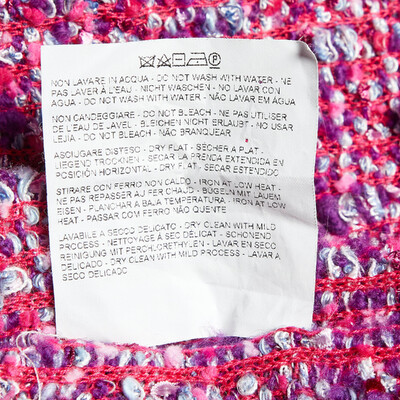 NON LAVARE IN ACQUA - DO NOT WASH WITH WATER - NE
PAS LAVER À L'EAU - NICHT WASCHEN - NO LAVAR CON
AGUA - DO NOT WASH WITH WATER - NÃO LAVAR EM ÁGUA
NON CANDEGGIARE - DO NOT BLEACH - NE PAS UTILISER
DE L'EAU DE JAVEL - BLEICHEN NICHT ERLAUBT - NO USAR
LEJIA - DO NOT BLEACH - NÃO BRANQUEAR
ASCIUGARE DISTESO - DRY FLAT - SECHER A PLAT -
LIEGEND TROCKNEN - SECAR LA PRENDA EXTENDIDA EN
POSICIÓN HORIZONTAL - DRY FLAT - SECAR ESTENDIDO
STIRARE CON FERRO NON CALDO - IRON AT LOW HEAT -
NE PAS REPASSER AU FER CHAUD - BÜGELN MIT LAUEM
EISEN - PLANCHAR A BAJA TEMPERATURA - IRON AT LOW
HEAT - PASSAR COM FERRO NÃO QUENTE
LAVABILE A SECCO DELICATO - DRY CLEAN WITH MILD
PROCESS - NETTOYAGE À SEC DÉLICAT - SCHONEND
REINIGUNG MIT PERCHLORETHYLEN - LAVAR EN SECO
DELICADO - DRY CLEAN WITH MILD PROCESS - LAVAR A
SECO DELICADO